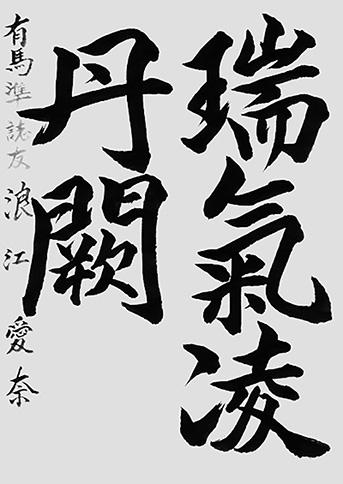 瑞氣凌
丹闕
有馬準誌友 浪江愛奈